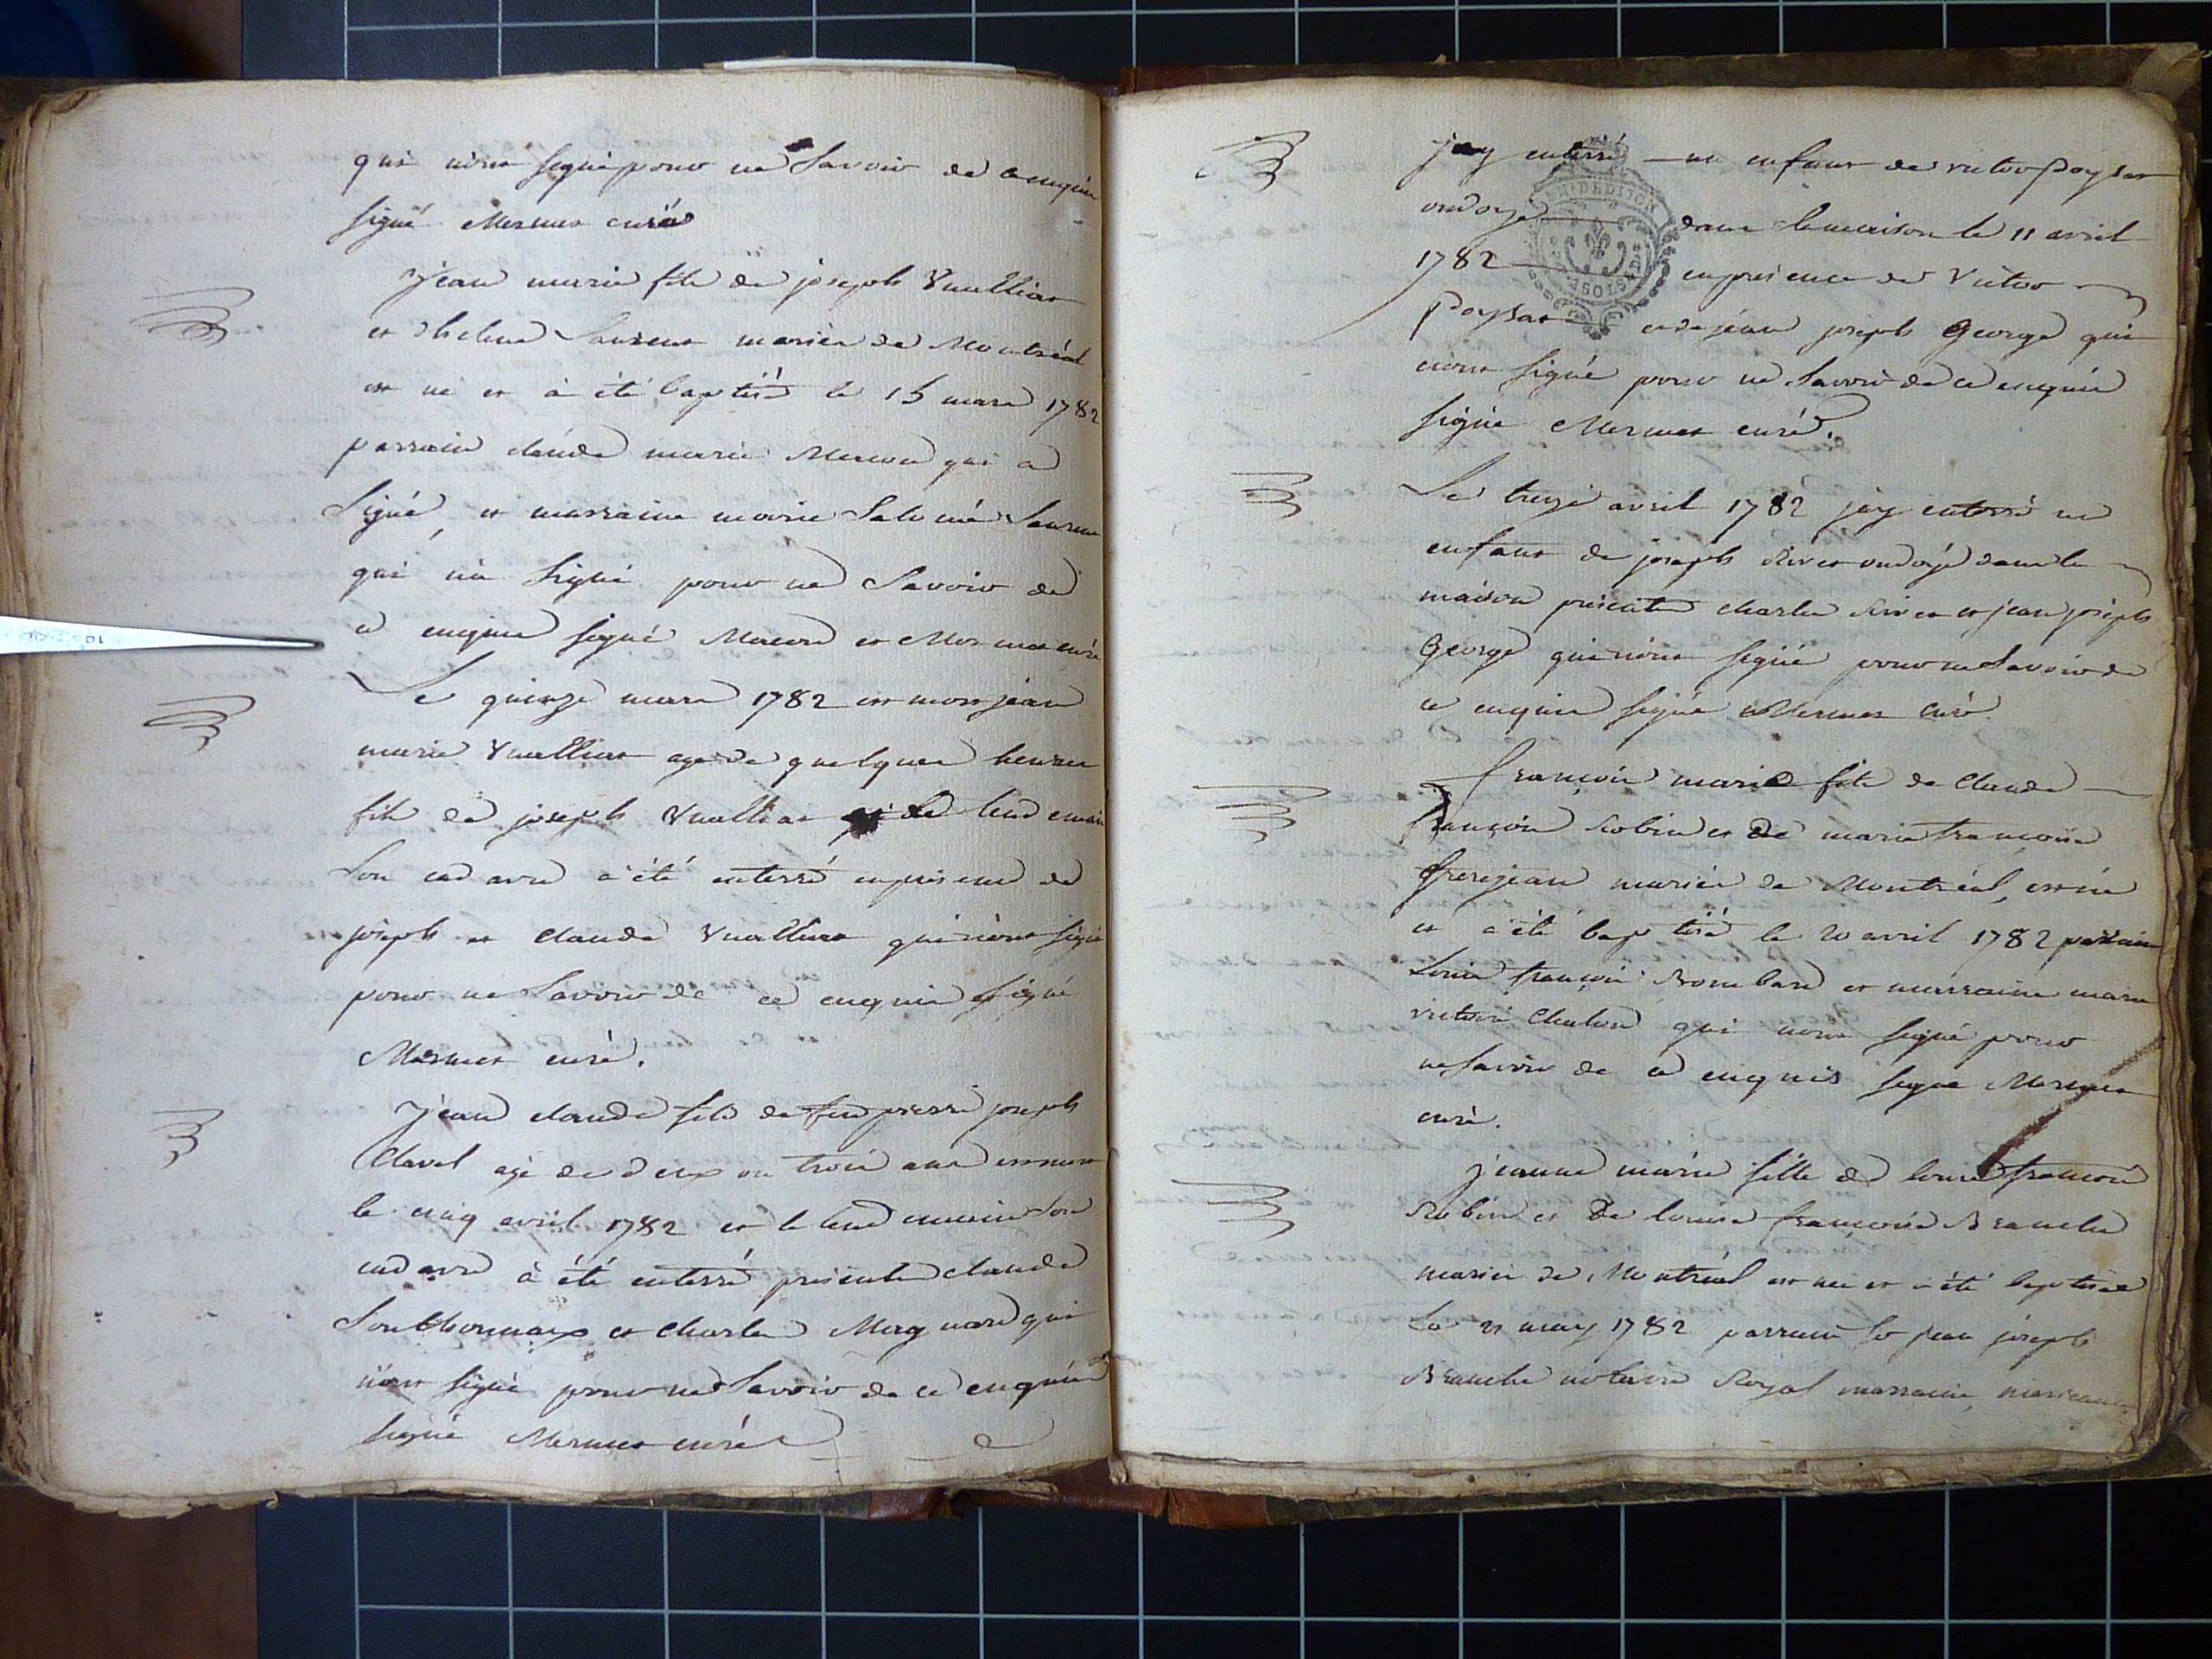 qui n'ont signé pour ne Savoir de ce enquis
signé Mermet curé
Jean marie fils de joseph Vuilliat
et d'helene Laurent mariés de Montréal
est né et à été baptisé le 15 mars 1782
parrain claude marie Maron qui a
Signé, et marraine marie Salomé Laurent
qui n'a Signé pour ne Savoir de
ce enquise signé Maron et Mermet curé
Le quinze mars 1782 est mort jean
marie Vuilliat agé de quelques heures
fils de joseph Vuilliat et le lendemain
Son cadavre à été enterré en presence de
joseph et claude Vuilliat qui n'ont signé
pour ne Savoir de ce enquis signé
Mermet curé.
Jean claude fils de feu pierre joseph
Clavel agé de deux ou trois ans est mort
le cinq avril 1782 et le lend'emain Son
cadavre à été enterré présents claude
Sonthonnax et charles Magnard qui
n'ont signé pour ne Savoir de ce enquis
signé Mermet curé
j'ay enterré un enfant de victor Poysat
ondoyé dans la maison le 11 avril
1782 en presence de Victor
Poysat et de jean joseph George qui
n'ont signé pour ne Savoir de ce enquis
signé Mermet curé.
Le treize avril 1782 j'ay enterré un
enfant de joseph ondoyé dans la
maison présents charles et jean joseph
George qui n'ont signé pour ne Savoir de
ce enquis signé Mermet curé.
françois marie fils de Claude
françois Robin et De marie françoise
frerejean mariés de Montréal, est né
et à été baptisé le 20 avril 1782 parrain
Louis françois et marraine marie
victoire Chalon qui n'ont signé pour
ne Savoir de ce enquis signé Mermet
curé.
jeanne marie fille de louis françois
Robin et De louise françoise Branche
mariés de Montréal est née et à été baptisée
Le 21 may 1782 parrain Sr jean joseph
Branche notaire Royal marraine,